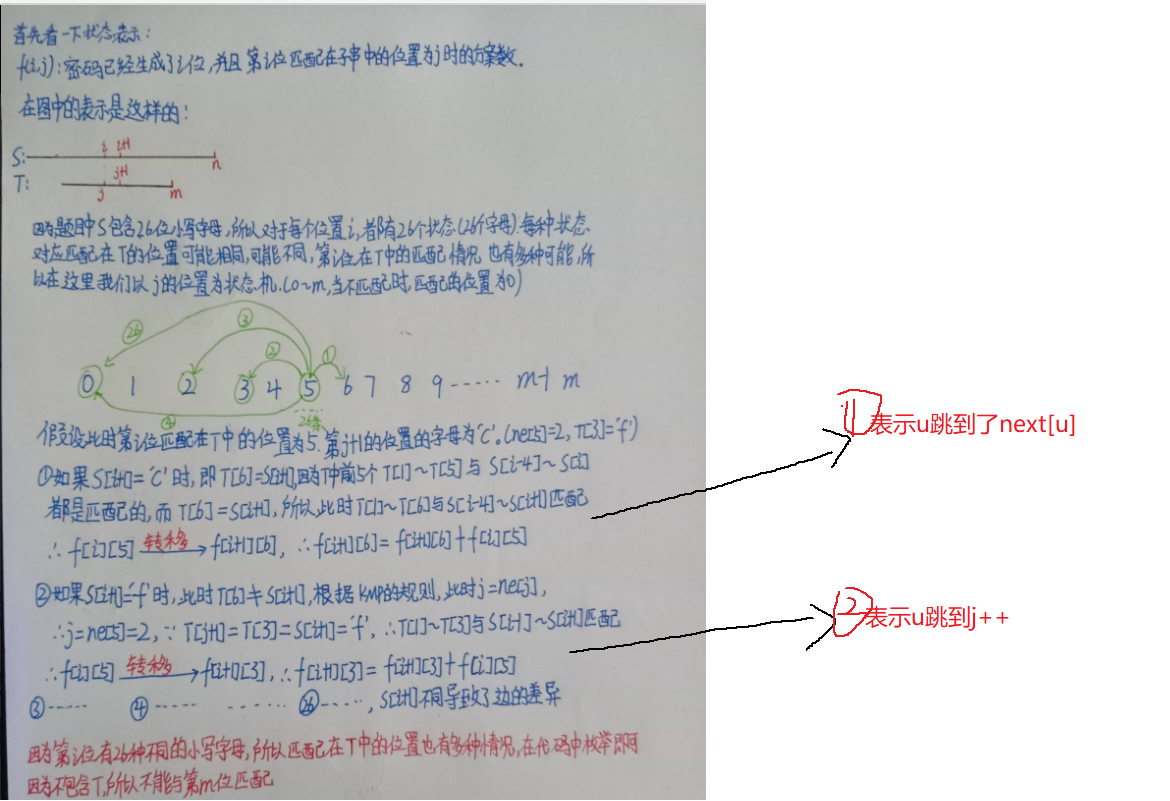 首先看一下状态表示：
f(i,j)：密码已经生成了i位，并且第i位匹配在子串中的位置为j时的方案数。
在图中的表示是这样的！
i i+1
S: n
j+1
T: j m
因为题目中S包含26位小写字母，所以对于每个位置i，都有26个状态(26个字母).每种状态
对应匹配在T的位置可能相同，可能不同，第i位在T中的匹配情况也有多种可能，所
以在这里我们以j的位置为状态机.(0~m,当不匹配时，匹配的位置为0)
㉖ ③ ② ①
0 1 2 3 4 5 6 7 8 9 ------ m-1 m
④ 26条
假设此时第i位匹配在T中的位置为5.第j+1的位置的字母为'C'。(ne[5]=2, T[3]='f')
①如果S[i+1]='C'时，即T[6]=S[i+1],因为T中前5个T[1]~T[5]与S[i-4]~S[i]
都是匹配的，而T[6]=S[i+1]，所以此时T[1]~T[6]与S[i-4]~S[i+1]匹配
∴ f[i][5] 转移 f[i+1][6], ∴f[i+1][6]= f[i+1][6]+f[i][5]
②如果S[i+1]='f'时，此时T[6]≠S[i+1],根据KMP的规则，此时j=ne[j],
∴j=ne[5]=2, ∵ T[j+1]=T[3]=S[i+1]='f', ∴T[1]~T[3]与S[i-1]~S[i+1]匹配
∴f[i][5] 转移 f[i+1][3], ∴f[i+1][3]= f[i+1][3]+f[i][5]
③····· ④····· ······ ㉖·····, S[i+1]不同导致了边的差异
因为第i位有26种不同的小写字母，所以匹配在T中的位置也有多种情况，在代码中枚举即可
因为不包含T，所以不能与第m位匹配
1 表示u跳到了next[u]
2 表示u跳到j++